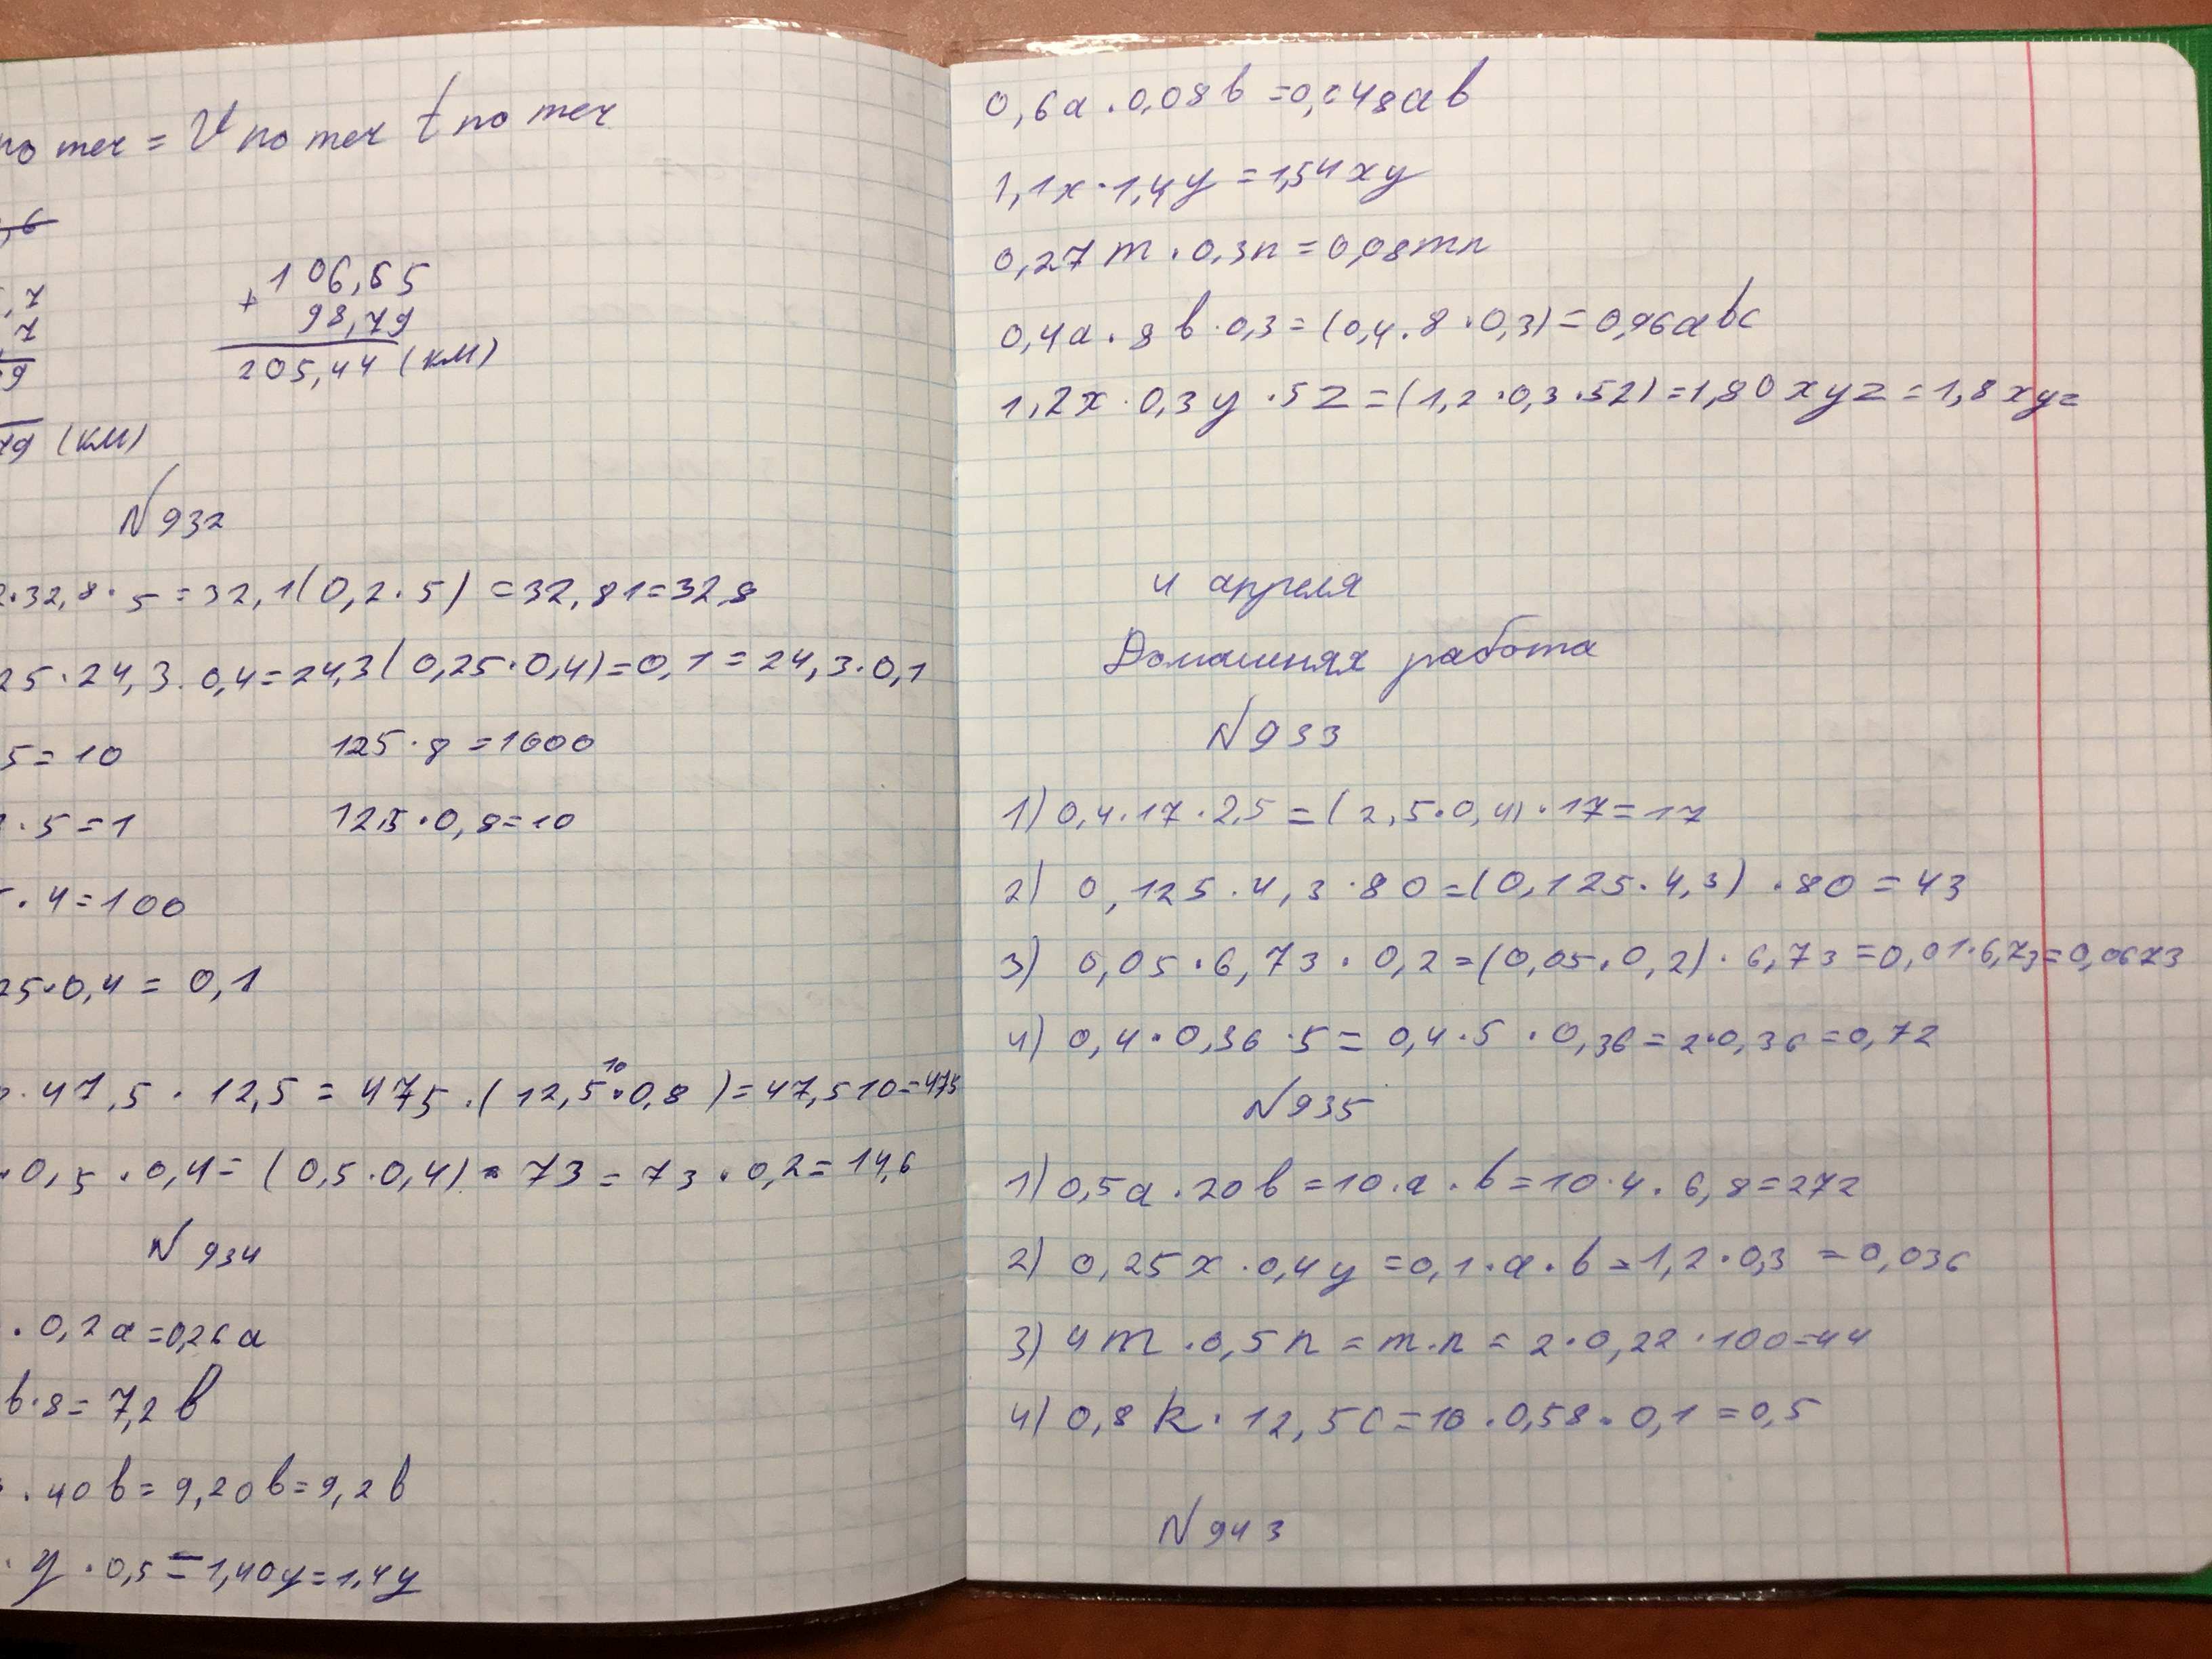 по теч = V по теч t по теч
,6
,7
7
,9
79 (км)
+ 106,65
98,79
205,44 (км)
N932
2·32,8·5=32,1(0,2·5)=32,81=32,8
25·24,3·0,4=24,3(0,25·0,4)=0,1=24,3·0,1
5=10 125·8=1000
·5=1 12,5·0,8=10
·4=100
25·0,4=0,1
·47,5·12,5=475·(12,5·0,8)=47,510=475
10
·0,5·0,4=(0,5·0,4)·73=73·0,2=14,6
N934
·0,2a=0,26a
b·8=7,2b
·40b=9,20b=9,2b
·y·0,5=1,40y=1,4y
0,6a·0,08b=0,048ab
1,1x·1,4y=1,54xy
0,27m·0,3n=0,08mn
0,4a·8b·0,3=(0,4·8·0,3)=0,96abc
1,2x·0,3y·5z=(1,2·0,3·5z)=1,80xyz=1,8xyz
4 апреля
Домашняя работа
N933
1) 0,4·17·2,5=(2,5·0,4)·17=17
2) 0,125·4,3·80=(0,125·4,3)·80=43
3) 0,05·6,73·0,2=(0,05·0,2)·6,73=0,01·6,73=0,0673
4) 0,4·0,36·5=0,4·5·0,36=2·0,36=0,72
N935
1) 0,5a·20b=10·a·b=10·4·6,8=272
2) 0,25x·0,4y=0,1·a·b=1,2·0,3=0,036
3) 4m·0,5n=m·n=2·0,22·100=44
4) 0,8k·12,5c=10·0,58·0,1=0,5
N943